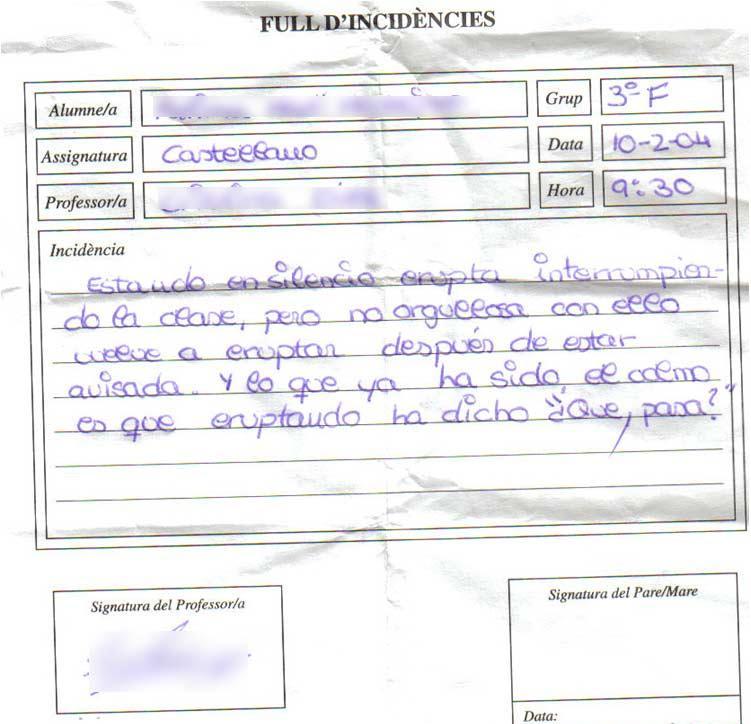 FULL D'INCIDÈNCIES
Alumne/a
Grup 3º F
Assignatura Castellano
Data 10-2-04
Professor/a
Hora 9:30
Incidència
Estando en silencio erupta interrumpien-
do la clase, pero no orgullosa con ello
vuelve a eruptar después de estar
avisada. Y lo que ya ha sido el colmo
es que eruptando ha dicho "¿Que, pasa?"
Signatura del Professor/a
Signatura del Pare/Mare
Data: